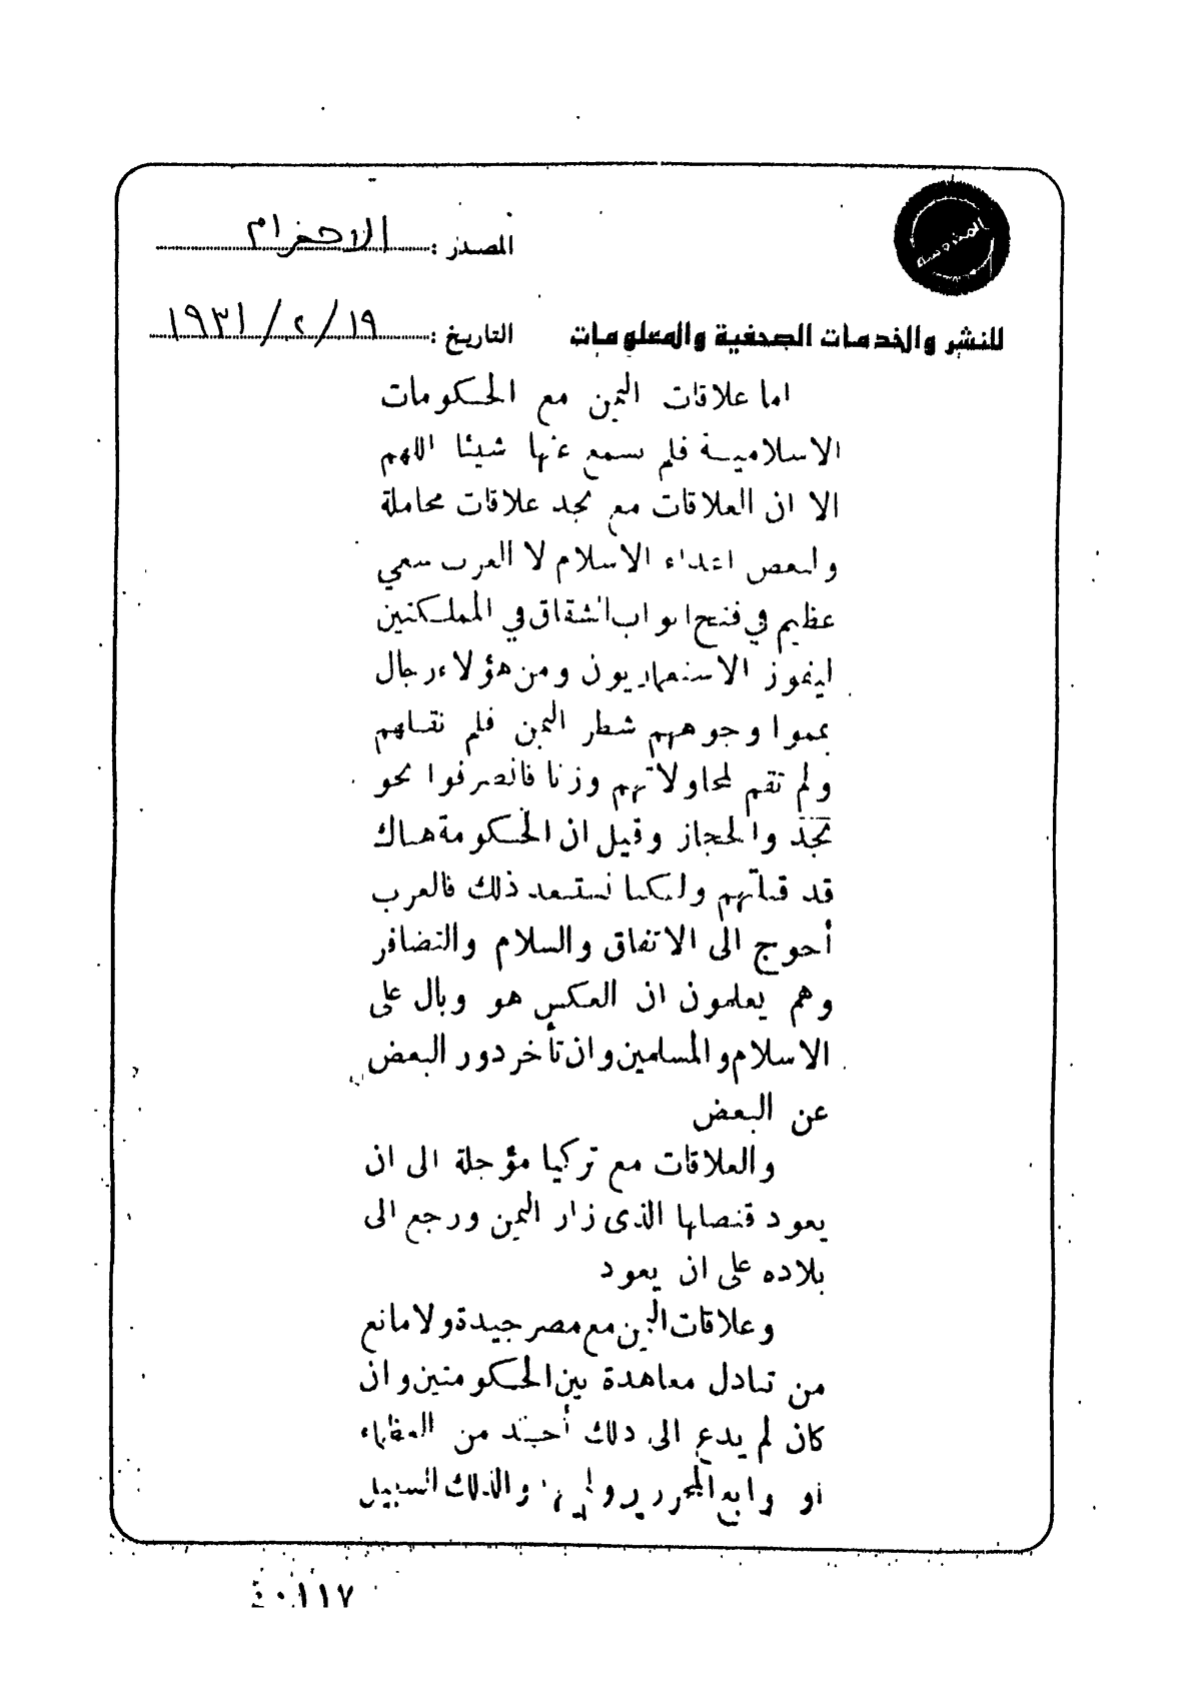 المصدر : الاهرام
التاريخ : ١٩ / ٢ / ١٩٣١
للنشر والخدمات الصحفية والمعلومات
اما علاقات اليمن مع الحكومات
الاسلامية فلم نسمع عنها شيئا اللهم
الا ان العلاقات مع نجد علاقات مجاملة
ولبعض اعداء الاسلام لا العرب سعي
عظيم في فتح ابواب الشقاق في المملكتين
ليفوز الاستعماريون ومن هؤلاء رجال
يمموا وجوههم شطر اليمن فلم نقبلهم
ولم تقم لمحاولاتهم وزنا فانصرفوا نحو
نجد والحجاز وقيل ان الحكومة هناك
قد قبلتهم ولكنا نستبعد ذلك فالعرب
أحوج الى الاتفاق والسلام والتضافر
وهم يعلمون ان العكس هو وبال على
الاسلام والمسلمين وان تأخر دور البعض
عن البعض
والعلاقات مع تركيا مؤجلة الى ان
يعود قنصلها الذى زار اليمن ورجع الى
بلاده على ان يعود
وعلاقات اليمن مع مصر جيدة ولا مانع
من تبادل معاهدة بين الحكومتين وان
كان لم يدع الى ذلك أحد من العظماء
او والذلك السبيل
٤٠١١٧